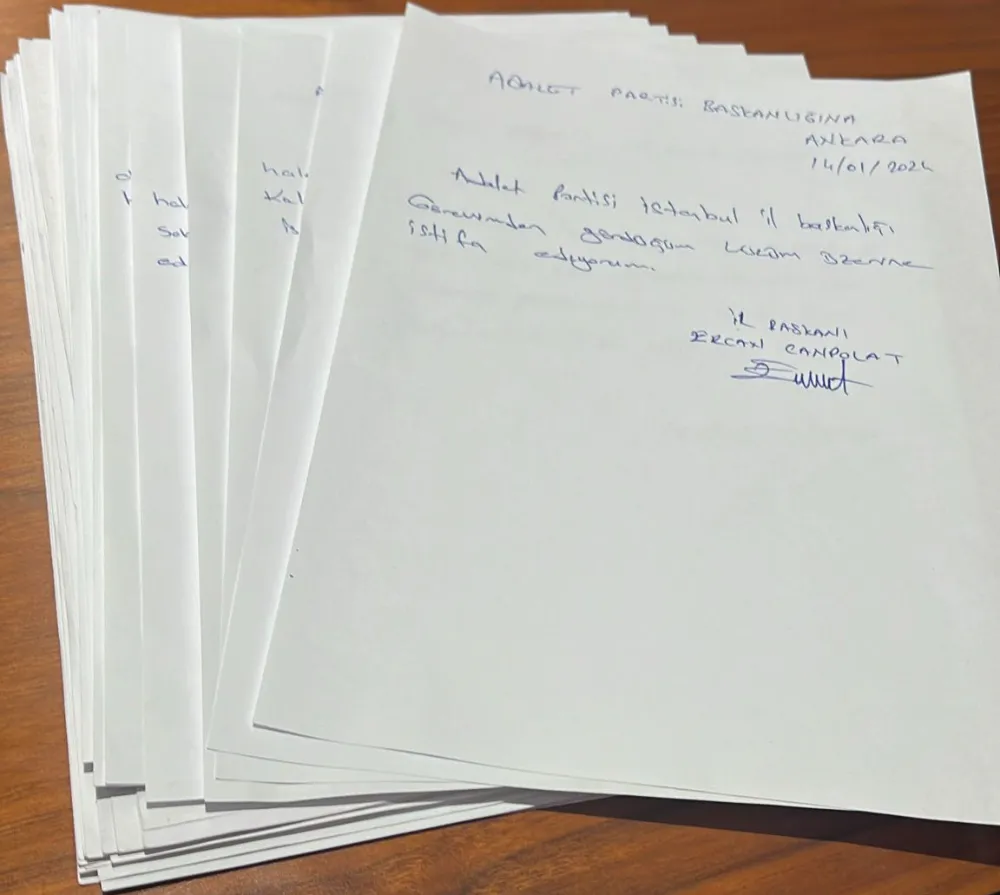 ADALET PARTİSİ BAŞKANLIĞINA
ANKARA
14/01/2024
Adalet Partisi istanbul il başkanlığı
Görevimden gördüğüm lüzum üzerine
istifa ediyorum.
İL BAŞKANI
ERCAN CANPOLAT
hal
Kal
hal
ed